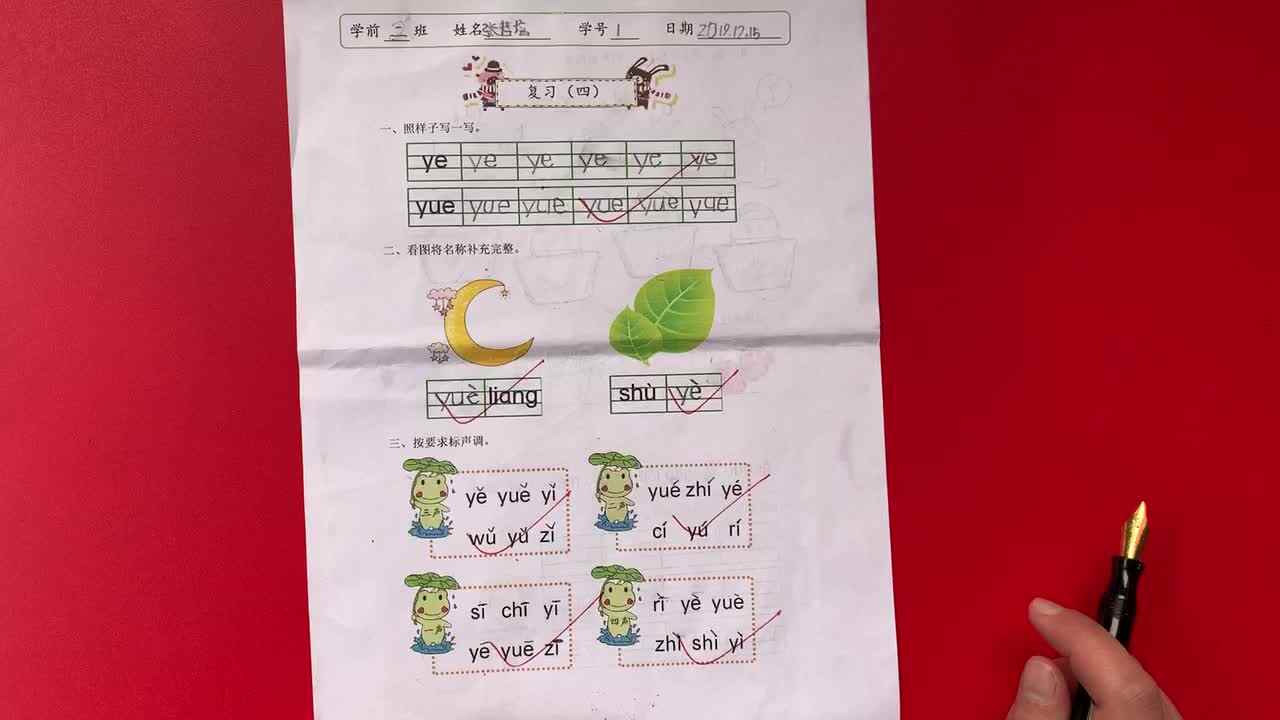 学前 三 班 姓名 张 学号 1 日期 2019.12.15
复习（四）
一、照样子写一写。
ye ye ye ye ye ye
yue yue yue yue yue yue
二、看图将名称补充完整。
yuè liang
shù yè
三、按要求标声调。
三声
yě yuě yǐ
wǔ yǔ zǐ
二声
yué zhí yé
cí yú rí
一声
sī chī yī
yē yuē zī
四声
rì yè yuè
zhì shì yì